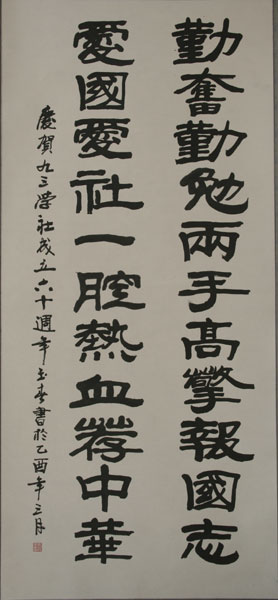 勤奮勤勉兩手高擎報國志
愛國愛社一腔熱血荐中華
慶賀九三學社成立六十週年玉書書於乙酉年三月